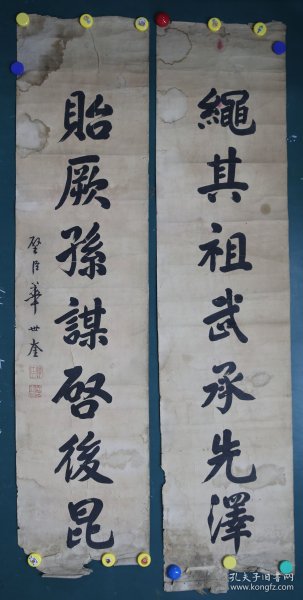 繩其祖武承先澤
貽厥孫謀啓後昆
璧臣華世奎
孔夫子旧书网
www.kongfz.com